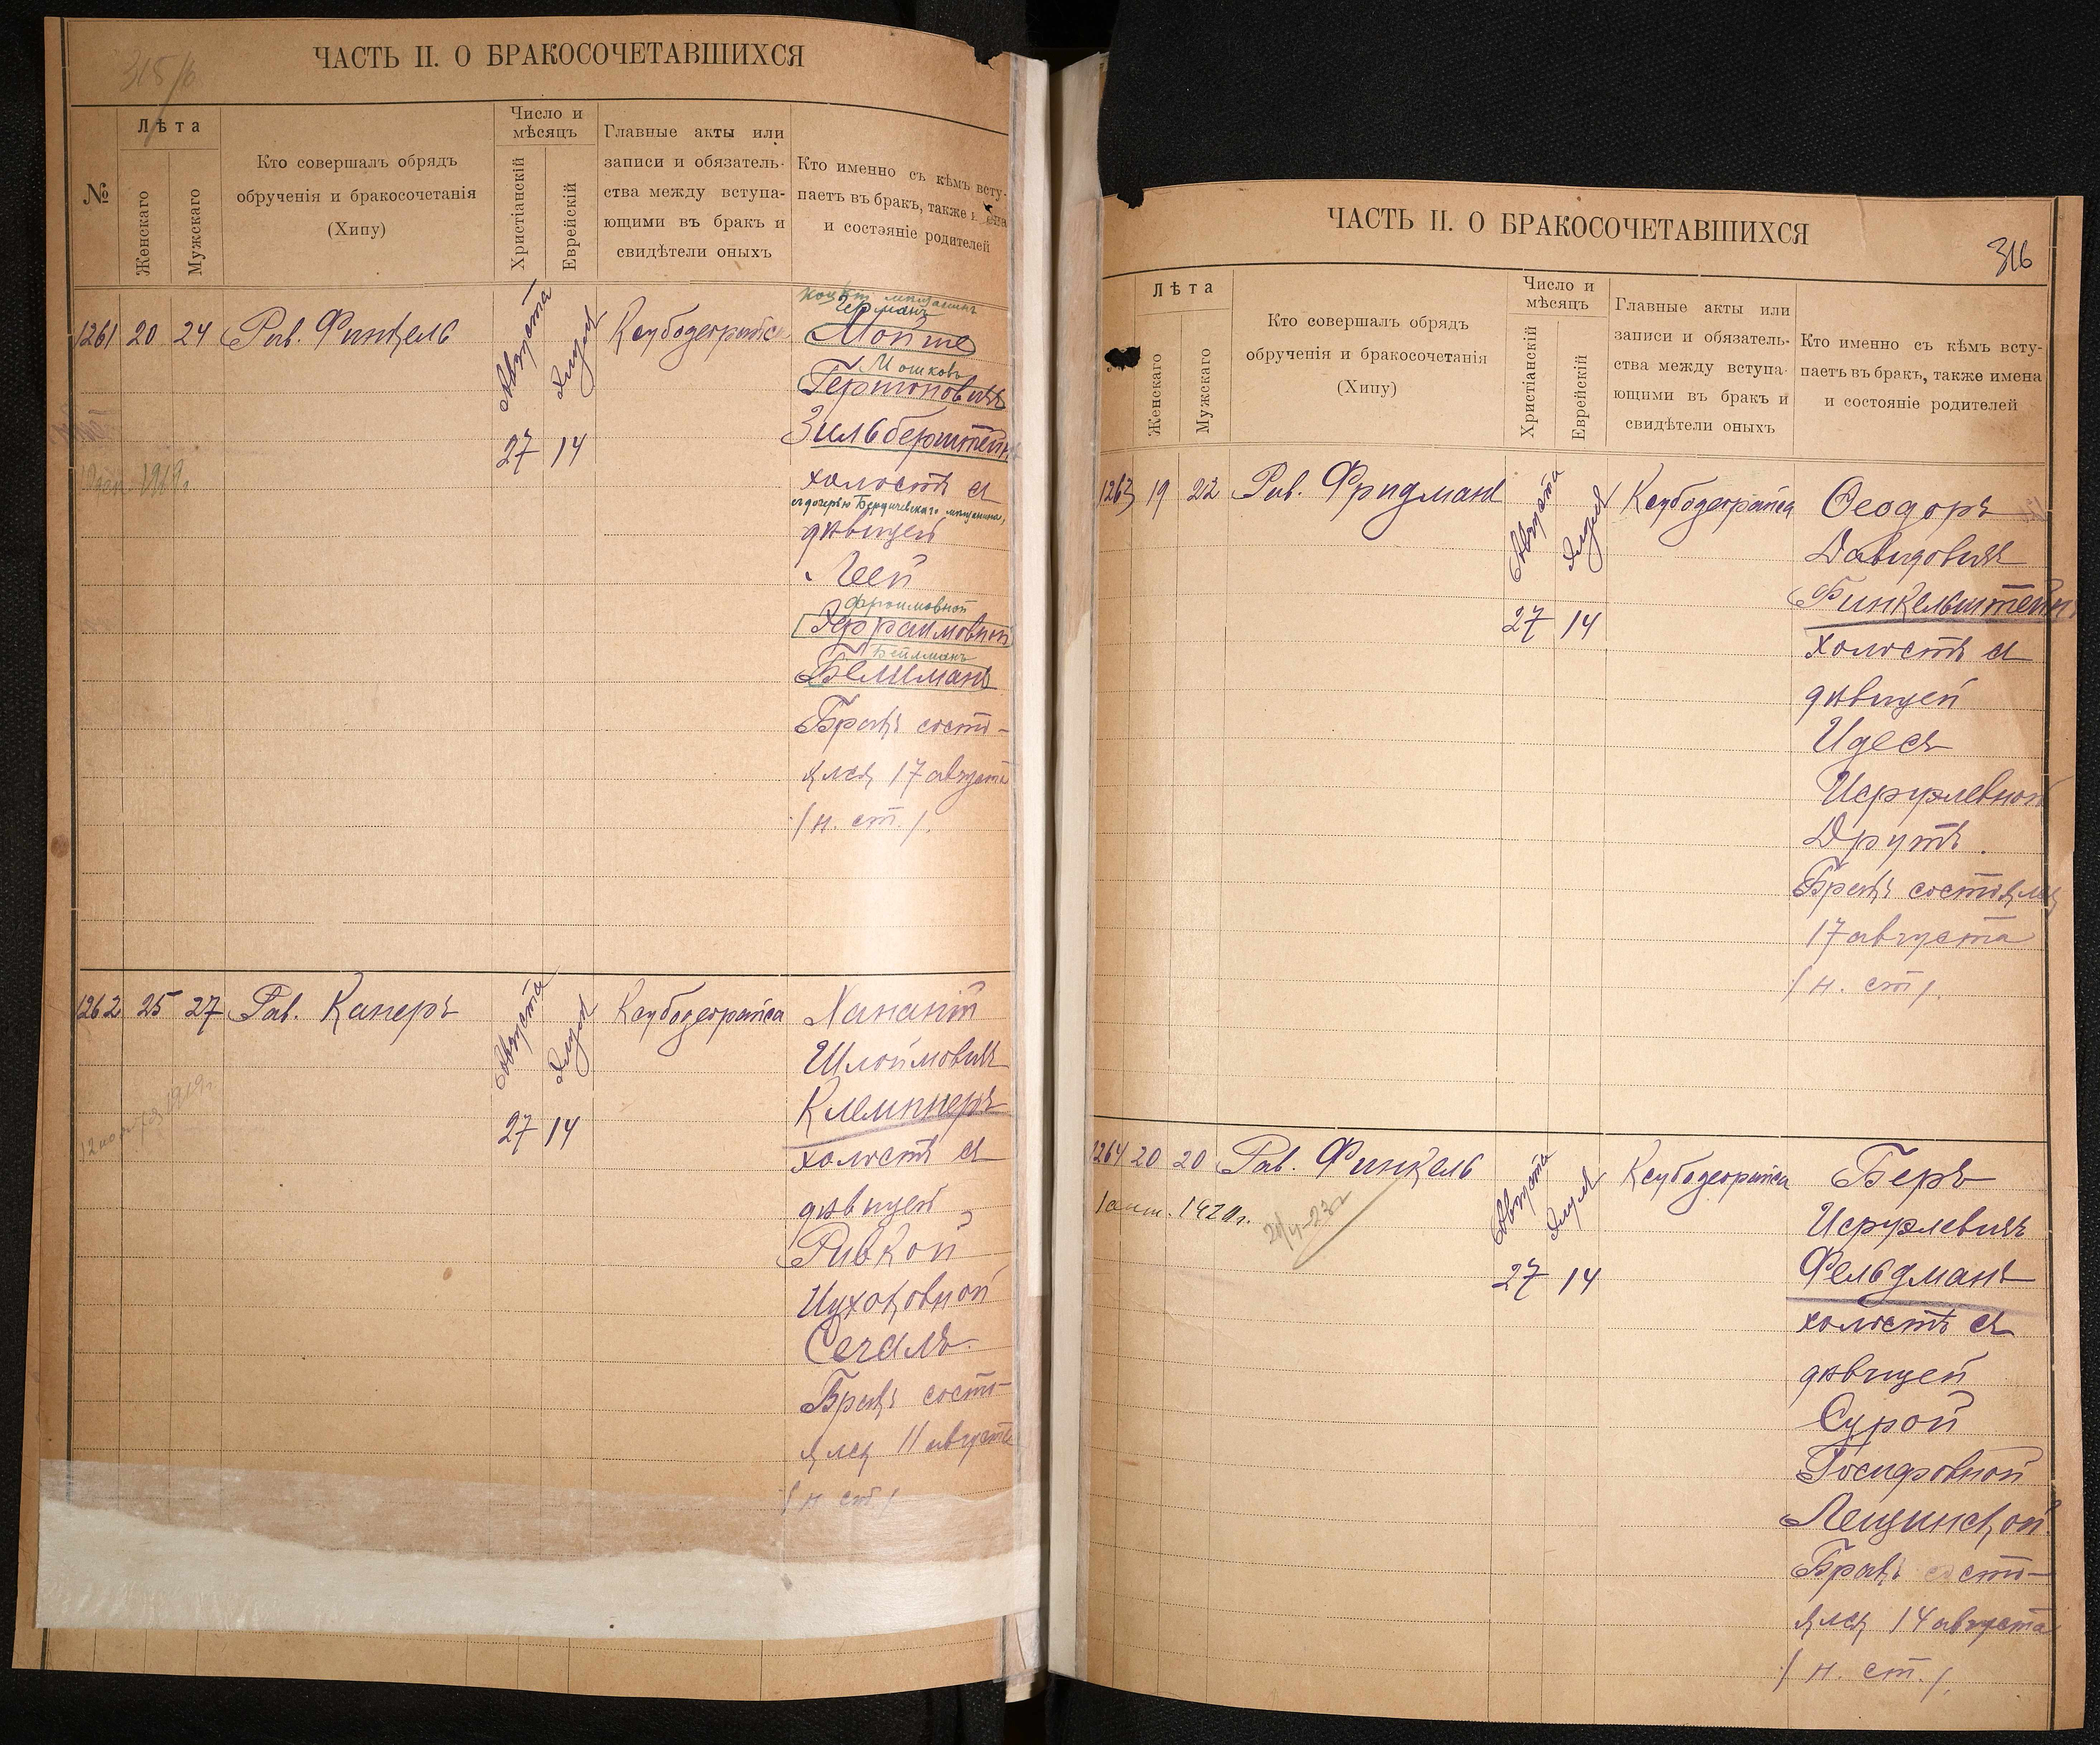 315/б
ЧАСТЬ II. О БРАКОСОЧЕТАВШИХСЯ
№
Лѣта
Женскаго
Мужскаго
Кто совершалъ обрядъ
обрученія и бракосочетанія
(Хипу)
Число и
мѣсяцъ
Христіанскій
Еврейскій
Главные акты или
записи и обязатель-
ства между вступа-
ющими въ бракъ и
свидѣтели оныхъ
Кто именно съ кѣмъ всту-
паетъ въ бракъ, также
и состояніе родителей
1261 20 24 Рав. Финкель
Августа
Элуля
27 14
мѣщанинъ
Германъ
Мойше
Мошковъ
Гершоновичъ
Зильберштейнъ
холостъ съ
съ дочерью Бердичевскаго мѣщанина,
дѣвицей
Леей
Фроимовной
Эфраимовной
Бейлманъ
Бракъ состо-
ялся 17 августа
/н. ст./.
1919г.
1262 25 27 Рав. Каперъ
Августа
Элуля
27 14
Шлоймовичъ
Клемпнеръ
холостъ съ
дѣвицей
Ривкой
Ицхоковной
Сегалъ.
Бракъ состо-
ялся 11 августа
/н. ст/
1919г.
ЧАСТЬ II. О БРАКОСОЧЕТАВШИХСЯ
316
Лѣта
Женскаго
Мужскаго
Кто совершалъ обрядъ
обрученія и бракосочетанія
(Хипу)
Число и
мѣсяцъ
Христіанскій
Еврейскій
Главные акты или
записи и обязатель-
ства между вступа-
ющими въ бракъ и
свидѣтели оныхъ
Кто именно съ кѣмъ всту-
паетъ въ бракъ, также имена
и состояніе родителей
1263 19 22 Рав. Фридманъ
Августа
Элуля
27 14
Ѳеодоръ
Давидовичъ
Финкельштейнъ
холостъ съ
дѣвицей
Идесъ
Исруэлевной
Друтъ.
Бракъ состоялся
17 августа
/н. ст/.
1264 20 20 Рав. Финкель
1920г.
Августа
Элуля
27 14
Беръ
Исруэлевичъ
Фельдманъ
холостъ съ
дѣвицей
Сурой
Іосифовной
Лещинской.
Бракъ состо-
ялся 14 августа
/н. ст./.